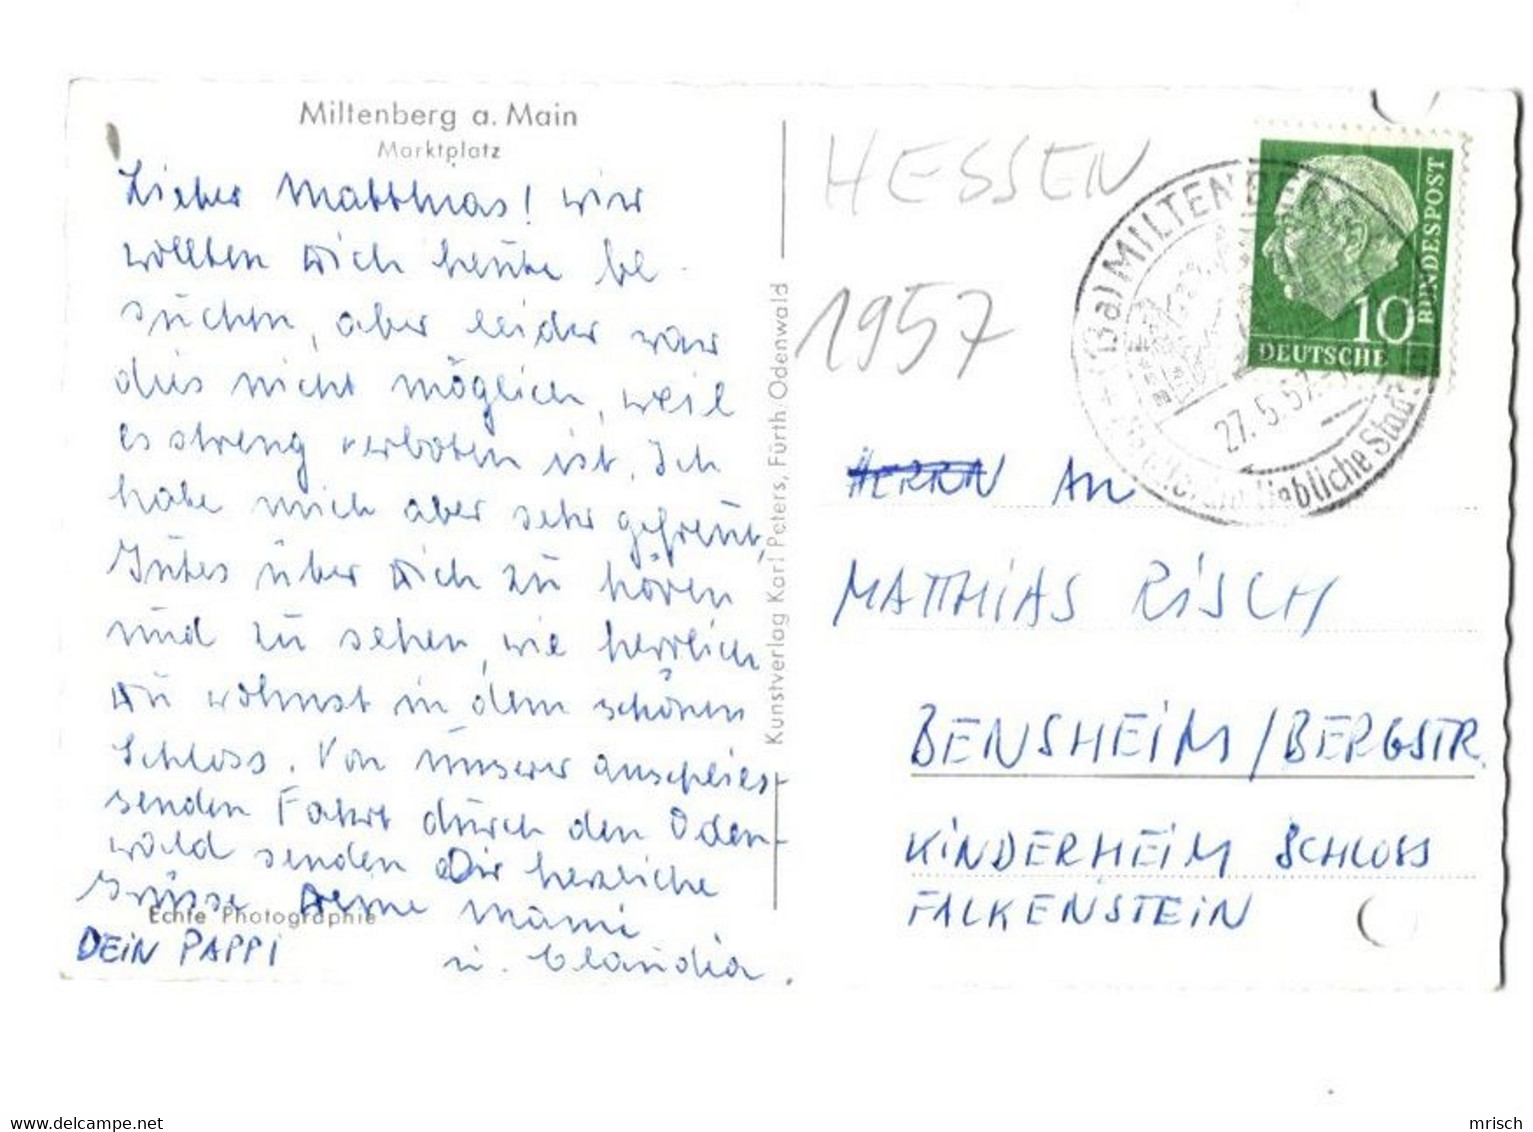 Miltenberg a. Main
Marktplatz
Lieber Matthias! wir
wollten Dich heute be-
suchen, aber leider war
dies nicht möglich, weil
es streng verboten ist. Ich
habe mich aber sehr gefreut,
Gutes über Dich zu hören
und zu sehen, wie herrlich
Du wohnst in dem schönen
Schloss. Von unserer anschlies-
senden Fahrt durch den Oden-
wald senden Dir herzliche
Grüsse Deine Mami
Echte Photographie
DEIN PAPPI
u. Claudia.
Kunstverlag Karl Peters, Fürth/Odenwald
HESSEN
1957
(13a) MILTENBERG
27.5.57
liebliche Stadt
10
DEUTSCHE
BUNDESPOST
HERRN An
MATTHIAS RISCH
BENSHEIM/BERGSTR.
KINDERHEIM SCHLOSS
FALKENSTEIN
delcampe.net
mrisch